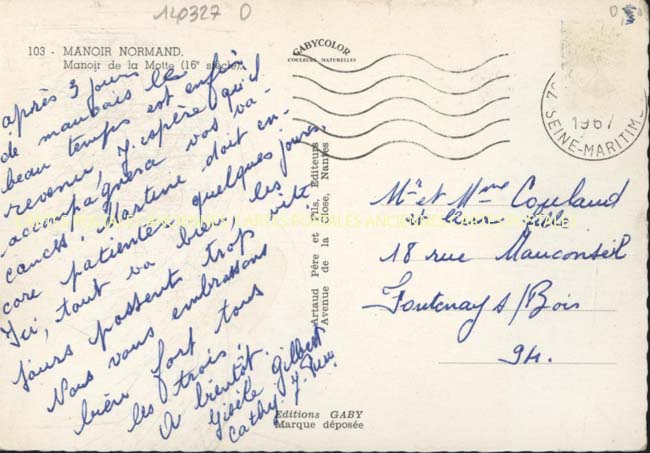 140327 D
103 - MANOIR NORMAND.
Manoir de la Motte (16e siècle).
GABYCOLOR
COULEURS NATURELLES
1967
SEINE-MARITIME
après 3 jours
de mauvais le
beau temps est enfin
revenu, j'espère qu'il
accompagnera vos va-
cances. Martine doit en-
core patienter quelques jours.
Ici, tout va bien, les
jours passent trop vite
Nous vous embrassons
bien fort tous
les trois.
A bientôt.
Gisèle Gilbert
Cathy J.
Artaud Père et Fils, Editeurs
Avenue de la Close, Nantes
Mr et Mme Copeland
et leur fille
18 rue Mauconseil
Fontenay s/Bois
94.
Editions GABY
Marque déposée